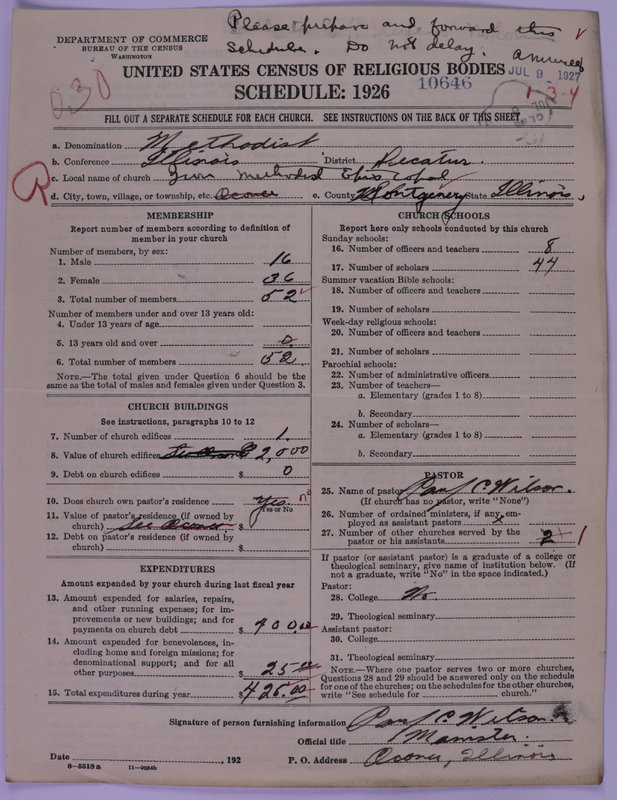 Please prepare and forward this
schedule. Do not delay.
DEPARTMENT OF COMMERCE
BUREAU OF THE CENSUS
WASHINGTON
UNITED STATES CENSUS OF RELIGIOUS BODIES
JUL 9 - 1927
SCHEDULE: 1926
10646
1-3-4
FILL OUT A SEPARATE SCHEDULE FOR EACH CHURCH. SEE INSTRUCTIONS ON THE BACK OF THIS SHEET
a. Denomination Methodist
b. Conference Illinois District Decatur.
c. Local name of church Methodist Episcopal
d. City, town, village, or township, etc. Oconee e. County Montgomery State. Illinois,
MEMBERSHIP
Report number of members according to definition of
member in your church
Number of members, by sex:
1. Male 16
2. Female 36
3. Total number of members 52
Number of members under and over 13 years old:
4. Under 13 years of age
5. 13 years old and over 0
6. Total number of members 52
NOTE.—The total given under Question 6 should be the
same as the total of males and females given under Question 3.
CHURCH BUILDINGS
See instructions, paragraphs 10 to 12
7. Number of church edifices 1.
8. Value of church edifices $ 2,000
9. Debt on church edifices $ 0
10. Does church own pastor's residence Yes no
Yes or No
11. Value of pastor's residence (if owned by
church) See Oconee $
12. Debt on pastor's residence (if owned by
church) $
EXPENDITURES
Amount expended by your church during last fiscal year
13. Amount expended for salaries, repairs,
and other running expenses; for im-
provements or new buildings; and for
payments on church debt $ 400.00
14. Amount expended for benevolences, in-
cluding home and foreign missions; for
denominational support; and for all
other purposes $ 25.00
15. Total expenditures during year $ 425.00
CHURCH SCHOOLS
Report here only schools conducted by this church
Sunday schools:
16. Number of officers and teachers 8
17. Number of scholars 44
Summer vacation Bible schools:
18. Number of officers and teachers
19. Number of scholars
Week-day religious schools:
20. Number of officers and teachers
21. Number of scholars
Parochial schools:
22. Number of administrative officers
23. Number of teachers—
a. Elementary (grades 1 to 8)
b. Secondary
24. Number of scholars—
a. Elementary (grades 1 to 8)
b. Secondary
PASTOR
25. Name of pastor Paul C. Wilson.
(If church has no pastor, write "None")
26. Number of ordained ministers, if any, em-
ployed as assistant pastors x
27. Number of other churches served by the
pastor or his assistants 2 1
If pastor (or assistant pastor) is a graduate of a college or
theological seminary, give name of institution below. (If
not a graduate, write "No" in the space indicated.)
Pastor:
28. College No.
29. Theological seminary
Assistant pastor:
30. College
31. Theological seminary
NOTE.—Where one pastor serves two or more churches,
Questions 28 and 29 should be answered only on the schedule
for one of the churches; on the schedules for the other churches,
write "See schedule for church."
Signature of person furnishing information Paul C. Wilson.
Official title
Date , 192 P. O. Address Oconee, Illinois
8—5518 a 11—9684b